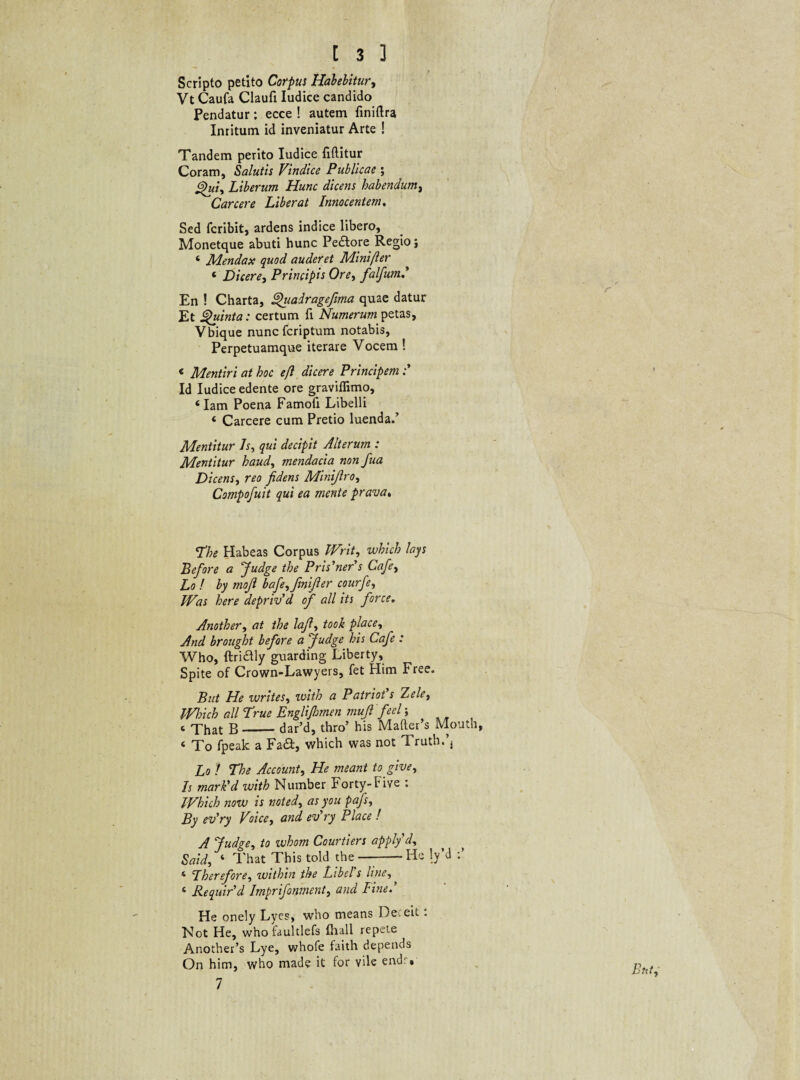 [ 3 ]
Scripto petito Corpus Habebitur,
Vt Cauſa Clauſi Iudice candido
Pendatur: ecce! autem ſiniſtra
Inritum id inveniatur Arte!
Tandem perito Iudice ſiſtitur
Coram, Salutis Vindice Publicae;
Qui, Liberum Hunc dicens habendum,
Carcere Liberat Innocentem.
Sed ſcribit, ardens indice libero,
Monetque abuti hunc Pectore Regio;
‘ Mendax quod auderet Miniſter
‘ Dicere, Principis Ore, falſum.’
En! Charta, Quadrageſima quae datur
Et Quinta: certum ſi Numerum petas,
Vbique nunc ſcriptum notabis,
Perpetuamque iterare Vocem!
‘ Mentiri at hoc eſt dicere Principem:’
Id Iudice edente ore graviſſimo,
‘ Iam Poena Famoſi Libelli
‘ Carcere cum Pretio luenda.’
Mentitur Is, qui decipit Alterum:
Mentitur haud, mendacia non ſua
Dicens, reo fidens Miniſtro,
Compoſuit qui ea mente prava.
The Habeas Corpus Writ, which lays
Before a Judge the Pris'ner's Caſe,
Lo! by moſt baſe, ſiniſter courſe,
Was here depriv'd of all its force.
Another, at the laſt, took place,
And brought before a Judge his Caſe:
Who, ſtrictly guarding Liberty,
Spite of Crown-Lawyers, ſet Him Free.
But He writes, with a Patriot's Zele,
Which all True Engliſhmen muſt feel;
‘ That B—— dar'd, thro' his Maſter's Mouth,
‘ To ſpeak a Fact, which was not Truth.’
Lo! The Account, He meant to give,
Is mark'd with Number Forty-Five:
Which now is noted, as you paſs,
By ev'ry Voice, and ev'ry Place!
A Judge, to whom Courtiers apply'd,
Said, ‘ That This told the —— He ly'd:’
‘ Therefore, within the Libel's line,
‘ Requir'd Impriſonment, and Fine.’
He onely Lyes, who means Deceit:
Not He, who faultleſs ſhall repete
Another's Lye, whoſe faith depends
On him, who made it for vile ends.
7
But,